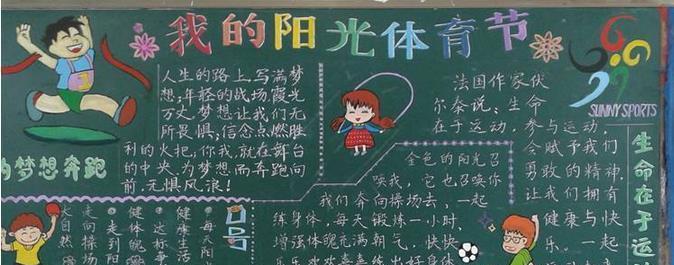 我的阳光体育节
人生的路上,写满梦
想;年轻的战场,霞光
万丈,梦想让我们无
所畏惧;信念点燃胜
利的火把,你我,就在舞台
的中央,为梦想而奔跑向
前,无惧风浪!
为梦想奔跑
法国作家伏
尔泰说:生命
在于运动,参与运动
会赋予我们
勇敢的精神,
让我们拥有
健康与快
乐。一起
SUNNY SPORTS
生命在于运
金色的阳光召
唤我,它也召唤你
我们奔向操场去,一起
练身体,每天锻炼一小时,
增强体魄充满朝气,快快
口号
每天阳
健康生活
健体魄
达标事
走到阳
走向操场
大自然